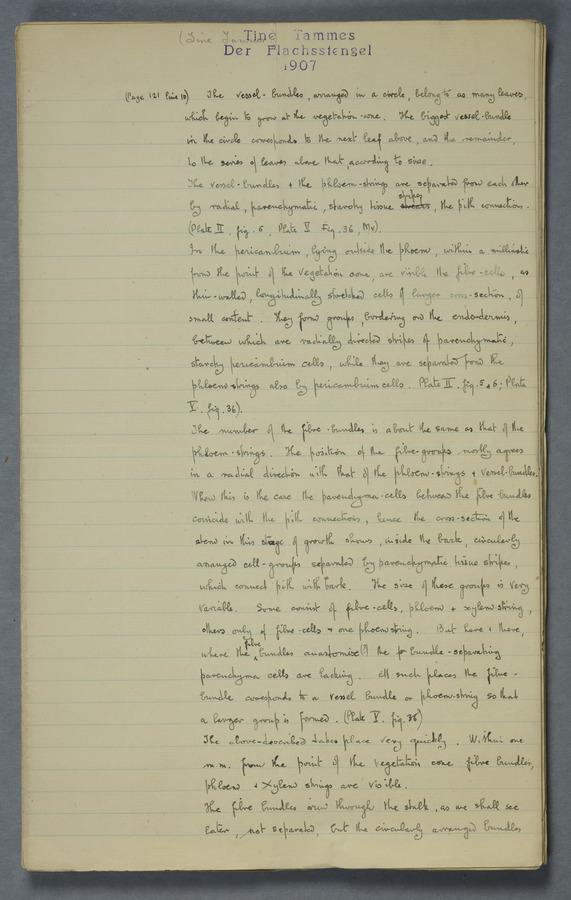 (Tine Tammes
Tine Tammes
Der Flachsstengel
1907
(Page 121 line 10) The vessel-bundles, arranged in a circle, belong to as many leaves,
which begin to grow at the vegetation-cone. The biggest vessel-bundle
in the circle corresponds to the next leaf above, and the remainder,
to the series of leaves above that, according to size.
The vessel-bundles + the phloem-strings are separated from each other
by radial, parenchymatic, starchy tissue stripes, the pith connections.
(Plate II, fig. 6, Plate V Fig. 36, Mv).
In the pericambium, lying outside the phloem, within a millimetre
from the point of the vegetation cone, are visible the fibre-cells, as
thin-walled, longitudinally stretched cells of larger cross-section, of
small content. They form groups, bordering on the endo-dermis,
between which are radially directed stripes of parenchymatic,
starchy pericambium cells, while they are separated from the
phloem-strings also by pericambium cells. Plate II. fig. 5 & 6; Plate
V. fig. 36).
The number of the fibre-bundles is about the same as that of the
phloem-strings. The position of the fibre-groups mostly agrees
in a radial direction with that of the phloem-strings + vessel-bundles.
When this is the case the parenchyma-cells between the fibre bundles
coincide with the pith connections, hence the cross-section of the
stem in this stage of growth shows, inside the bark, circularly
arranged cell-groups separated by parenchymatic tissue stripes,
which connect pith with bark. The size of these groups is very
variable. Some consist of fibre-cells, phloem + xylem string,
others only of fibre-cells + one phloem string. But here & there,
where the fibre bundles anastomise(?) the bundle-separating
parenchyma cells are lacking. At such places the fibre-
bundle corresponds to a vessel bundle or phloem-string so that
a larger group is formed. (Plate V. fig. 36)
The above-described takes place very quickly. Within one
m.m. from the point of the vegetation cone fibre bundles,
phloem + xylem strings are visible.
The fibre bundles run through the stalk, as we shall see
later, not separated, but the circularly arranged bundles